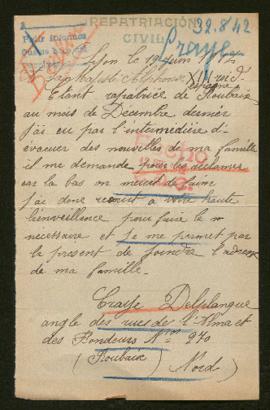 REPATRIATION
CIVIL
32.842
Praye
Lyon le 19 Juin
Sa Majesté Alphonse XIII roi d'
espagne
Etant rapatriée de Roubaix
au mois de Décembre dernier
j'ai eu par l'intermédiaire d'
évacuer des nouvelles de ma famille
il me demande pour les réclamer
car la bas on meurt de faim
j'ai donc recourt à votre haute
bienveillance pour faire le
nécessaire et Je me permet par
le présent de joindre l'adresse
de ma famille.
Delplanque
angle des rues de l'Alma et
des Fondeurs Nº 270
(Roubaix) Nord)